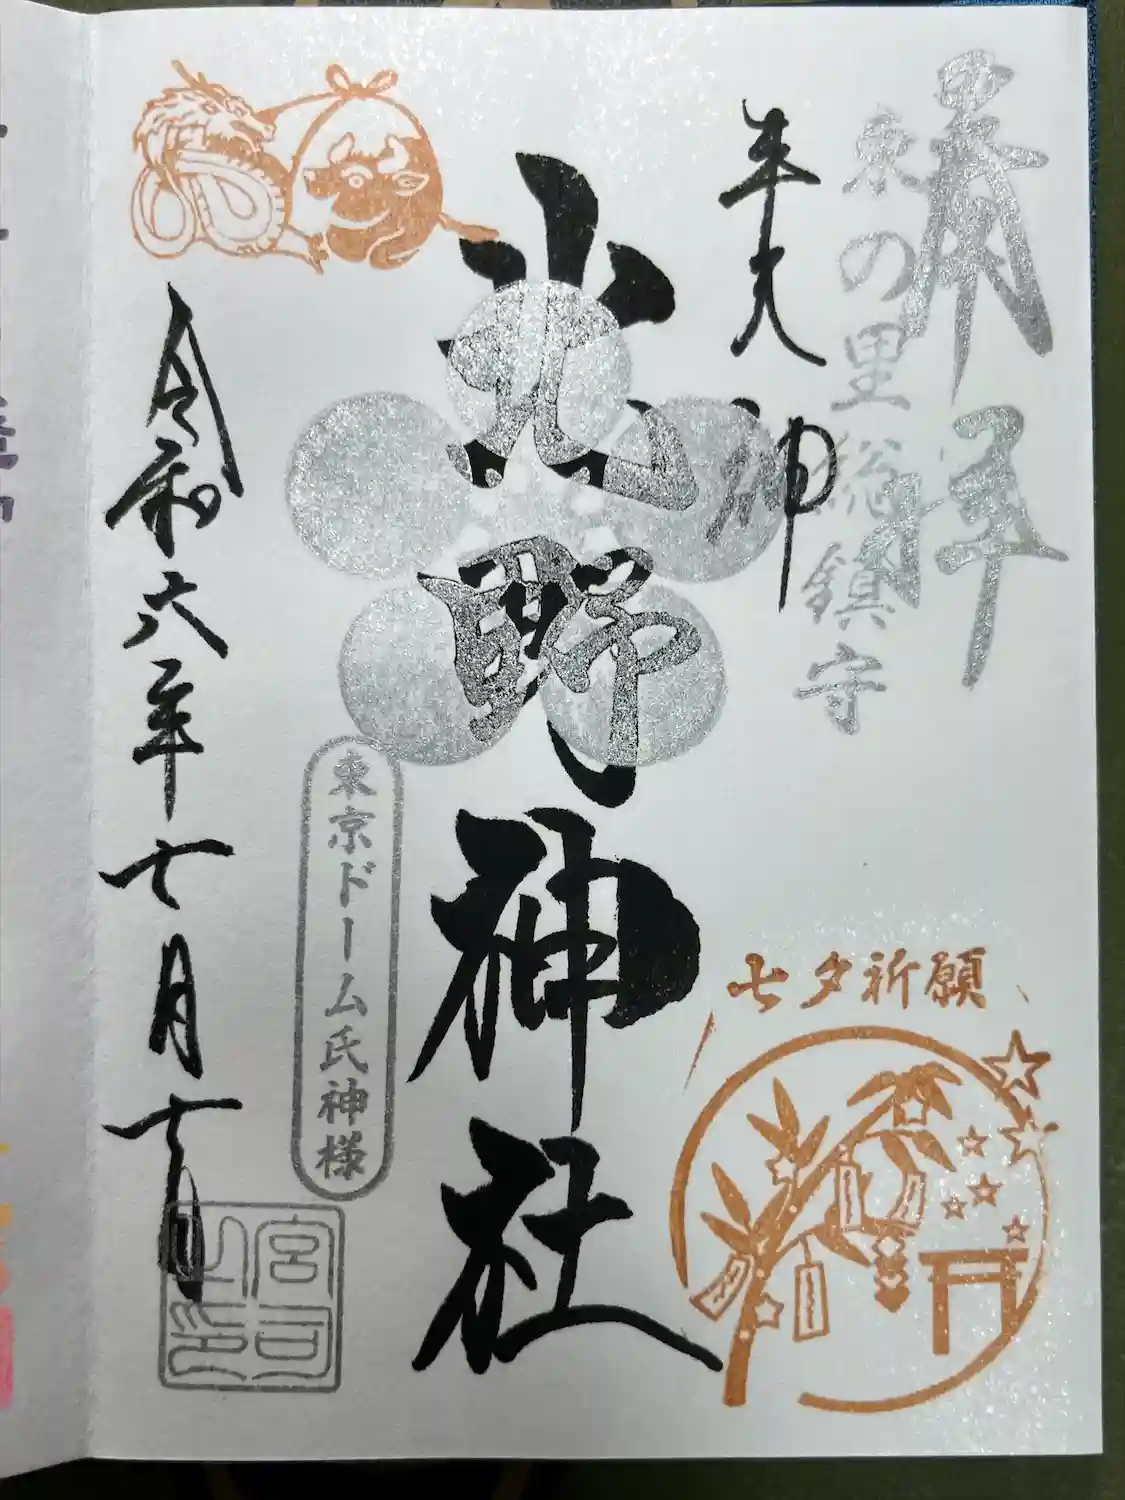 奉拝
東の里総鎮守
牛天神
北野神社
東京ドーム氏神様
令和六年七月七日
宮司之印
七夕祈願